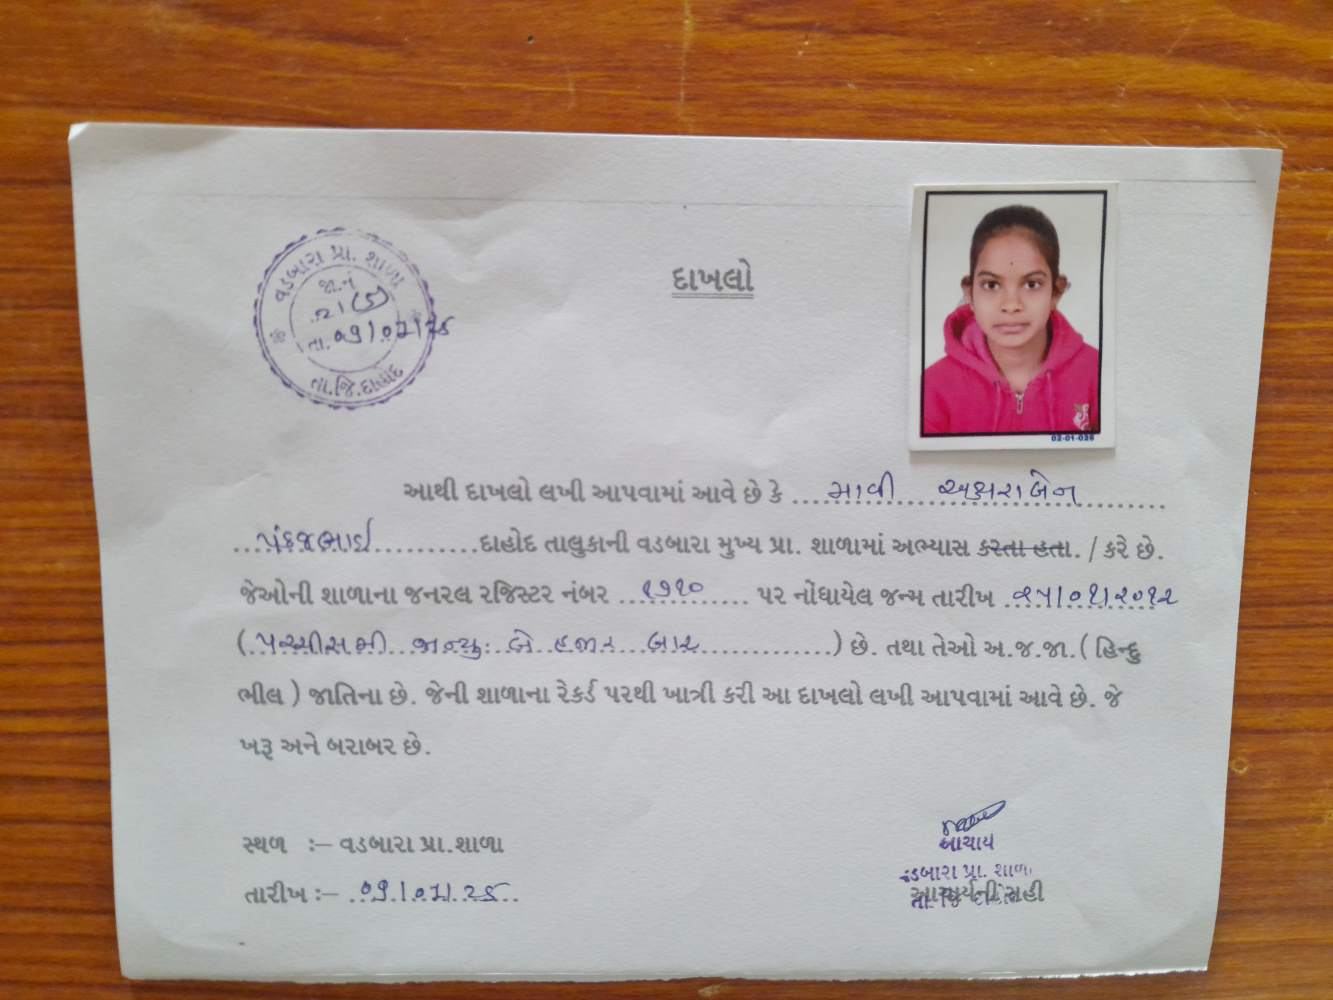 વડબારા પ્રા. શાળા
જા.નં
તા.
તા.જિ.દાહોદ
દાખલો
02-01-026
આથી દાખલો લખી આપવામાં આવે છે કે ....માવી અક્ષરાબેન....
...પંકજભાઈ...........દાહોદ તાલુકાની વડબારા મુખ્ય પ્રા. શાળામાં અભ્યાસ કરતા હતા. / કરે છે.
જેઓની શાળાના જનરલ રજિસ્ટર નંબર ..૧૭૧૦.. પર નોંધાયેલ જન્મ તારીખ ..૨૫/૦૧/૨૦૧૨
(..પચ્ચીસમી જાન્યુ. બે હજાર બાર.............) છે. તથા તેઓ અ.જ.જા. ( હિન્દુ
ભીલ ) જાતિના છે. જેની શાળાના રેકર્ડ પરથી ખાત્રી કરી આ દાખલો લખી આપવામાં આવે છે. જે
ખરૂ અને બરાબર છે.
આચાર્ય
સ્થળ :– વડબારા પ્રા.શાળા
વડબારા પ્રા. શાળા
તારીખ :–
આચાર્યની સહી